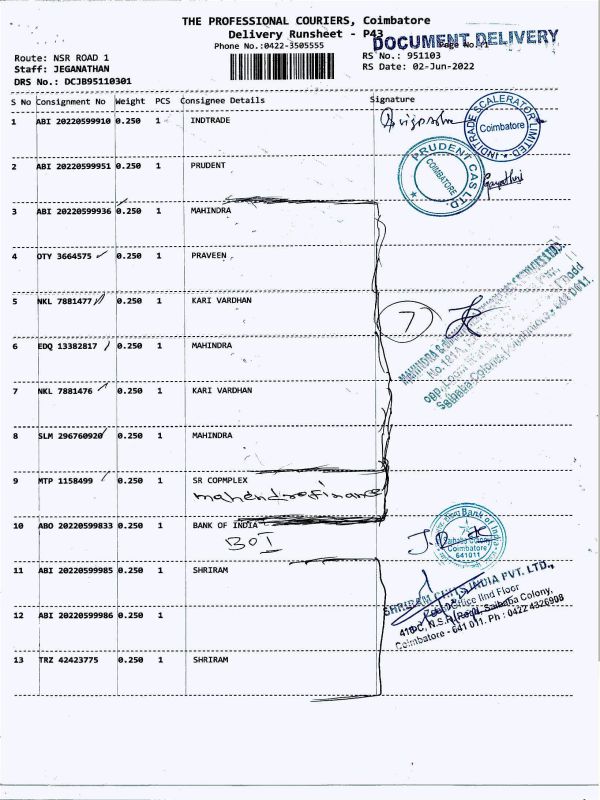 THE PROFESSIONAL COURIERS, Coimbatore
Delivery Runsheet - P43
DOCUMENT DELIVERY
Phone No.:0422-3505555
Page No.:1
Route: NSR ROAD 1
RS No.: 951103
Staff: JEGANATHAN
RS Date: 02-Jun-2022
DRS No.: DCJB95110301
S No Consignment No Weight PCS Consignee Details Signature
1 ABI 20220599910 0.250 1 INDTRADE
INDITRADE SCALERATOR LIMITED
Coimbatore
2 ABI 20220599951 0.250 1 PRUDENT
PRUDENT CAS LTD.
COIMBATORE
Gayathri
3 ABI 20220599936 0.250 1 MAHINDRA
4 OTY 3664575 0.250 1 PRAVEEN
5 NKL 7881477 0.250 1 KARI VARDHAN
7
MAHINDRA &
Saibaba Colony, Coimbatore - 641 011.
6 EDQ 13382817 0.250 1 MAHINDRA
7 NKL 7881476 0.250 1 KARI VARDHAN
8 SLM 296760920 0.250 1 MAHINDRA
9 MTP 1158499 0.250 1 SR COPMPLEX
mahendrafinance
10 ABO 20220599833 0.250 1 BANK OF INDIA
BOI
Bank of India
Saibaba Colony
Coimbatore
641011
11 ABI 20220599985 0.250 1 SHRIRAM
SHRIRAM CHITS INDIA PVT. LTD.,
Office IInd Floor
418-C, N.S.R. Road, Saibaba Colony,
Coimbatore - 641 011. Ph : 0422 4326908
12 ABI 20220599986 0.250 1
13 TRZ 42423775 0.250 1 SHRIRAM